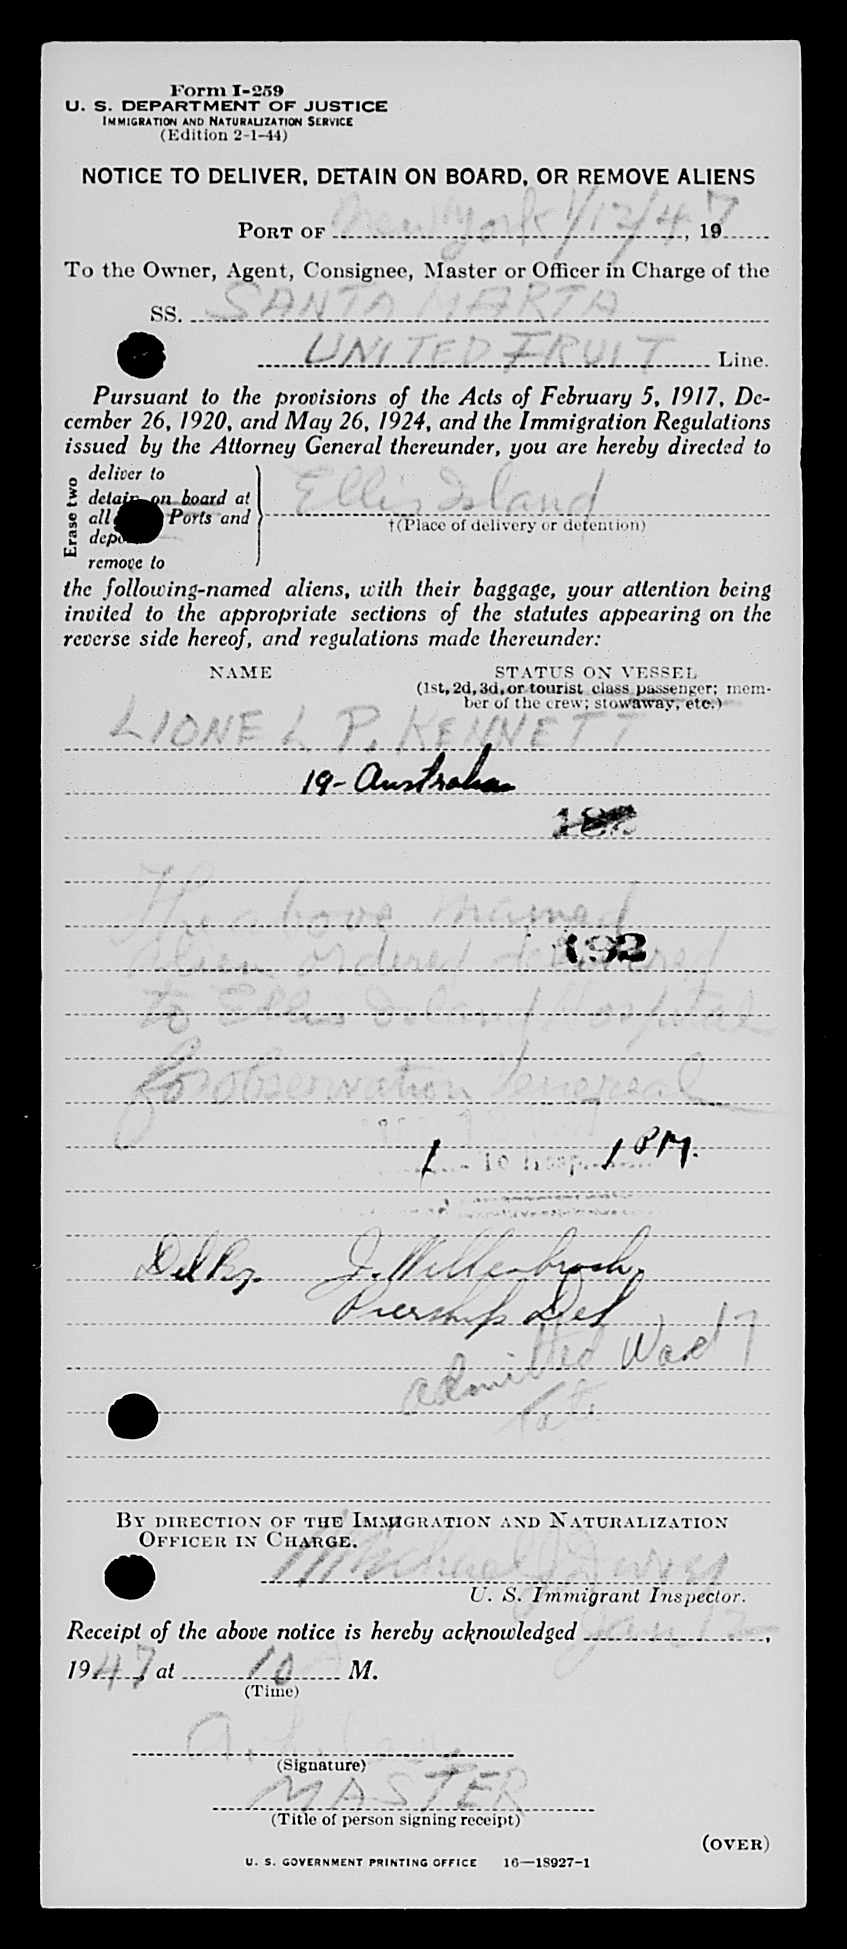 Form I-259
U. S. DEPARTMENT OF JUSTICE
IMMIGRATION AND NATURALIZATION SERVICE
(Edition 2-1-44)
NOTICE TO DELIVER, DETAIN ON BOARD, OR REMOVE ALIENS
PORT OF New York 1/12/47, 19
To the Owner, Agent, Consignee, Master or Officer in Charge of the
SS. SANTA MARTA
UNITED FRUIT Line.
Pursuant to the provisions of the Acts of February 5, 1917, De-
cember 26, 1920, and May 26, 1924, and the Immigration Regulations
issued by the Attorney General thereunder, you are hereby directed to
Erase two
deliver to
detain on board at
all Ports and
remove to
Ellis Island
†(Place of delivery or detention)
the following-named aliens, with their baggage, your attention being
invited to the appropriate sections of the statutes appearing on the
reverse side hereof, and regulations made thereunder:
NAME STATUS ON VESSEL
(1st, 2d, 3d, or tourist class passenger; mem-
ber of the crew; stowaway, etc.)
LIONEL P. KENNETT
19- Australian
182
The above named
192
alien ordered delivered
to Ellis Island Hospital
for observation Venereal
1 To Hosp. 1 PM.
Del By. J. Willenbrock
Piership Del
admitted Ward 7
BY DIRECTION OF THE IMMIGRATION AND NATURALIZATION
OFFICER IN CHARGE.
Michael J
U. S. Immigrant Inspector.
Receipt of the above notice is hereby acknowledged Jan 12,
1947 at 10 M.
(Time)
(Signature)
MASTER
(Title of person signing receipt)
(OVER)
U. S. GOVERNMENT PRINTING OFFICE 16—18927-1